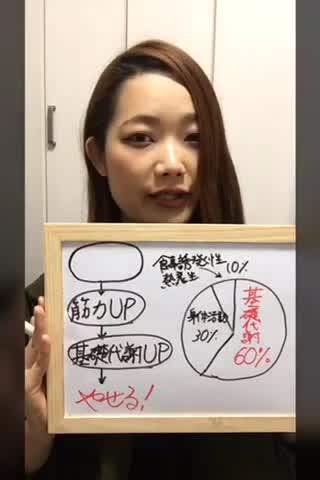 筋力UP
基礎代謝UP
やせる!
食事誘発性
熱発生
10%
身体活動
30%
基礎代謝
60%